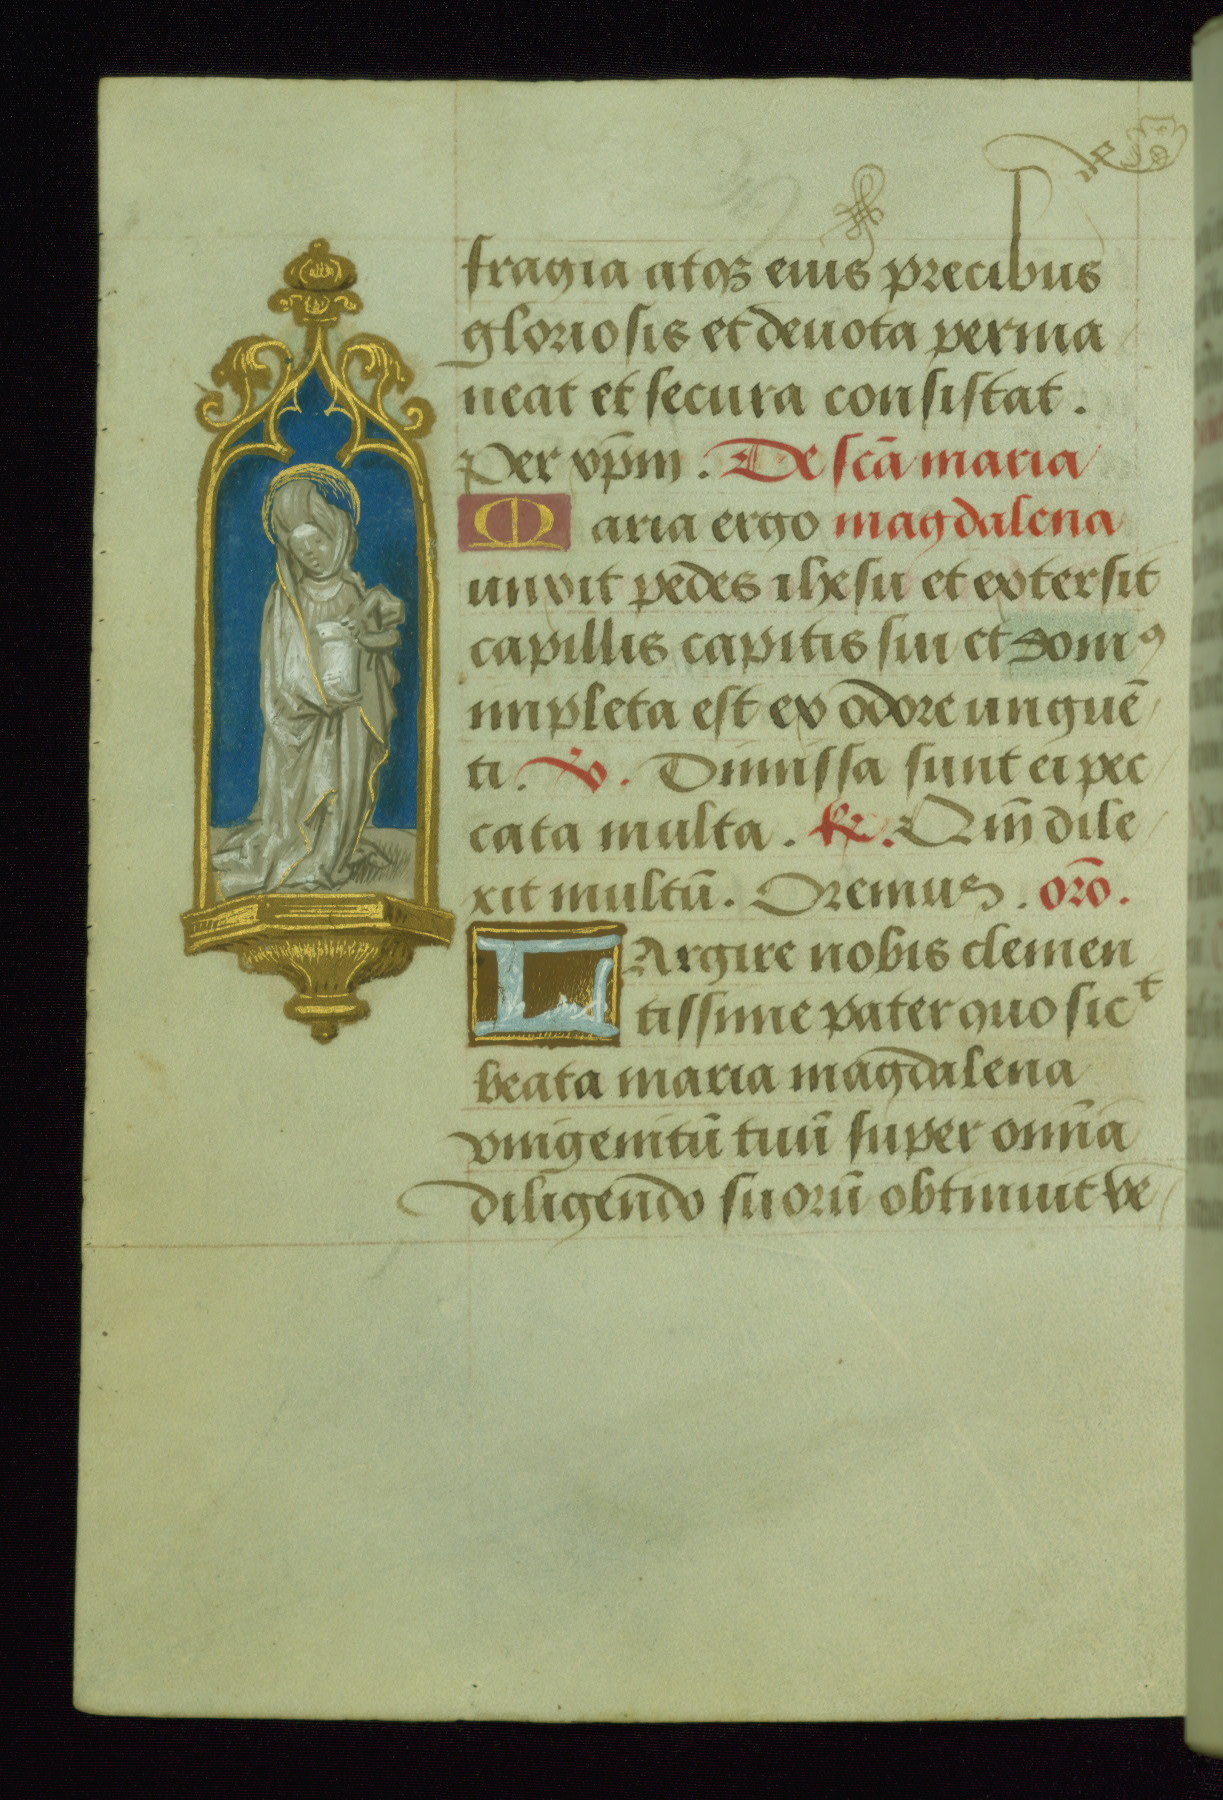 fragia atqꝫ eius precibus
gloriosis et deuota perma
neat et secura consistat.
Per xp̄m. De scā maria
Maria ergo magdalena
unxit pedes ihesu et extersit
capillis capitis sui et domꝰ
impleta est ex odore unguē
ti. V. Dimissa sunt ei pec
cata multa. R. Qm̄ dile
xit multū. Oremus. orō.
LArgire nobis clemen
tissime pater quo sict
beata maria magdalena
vnigenitū tuū super omīa
diligendo suorū obtinuit ve